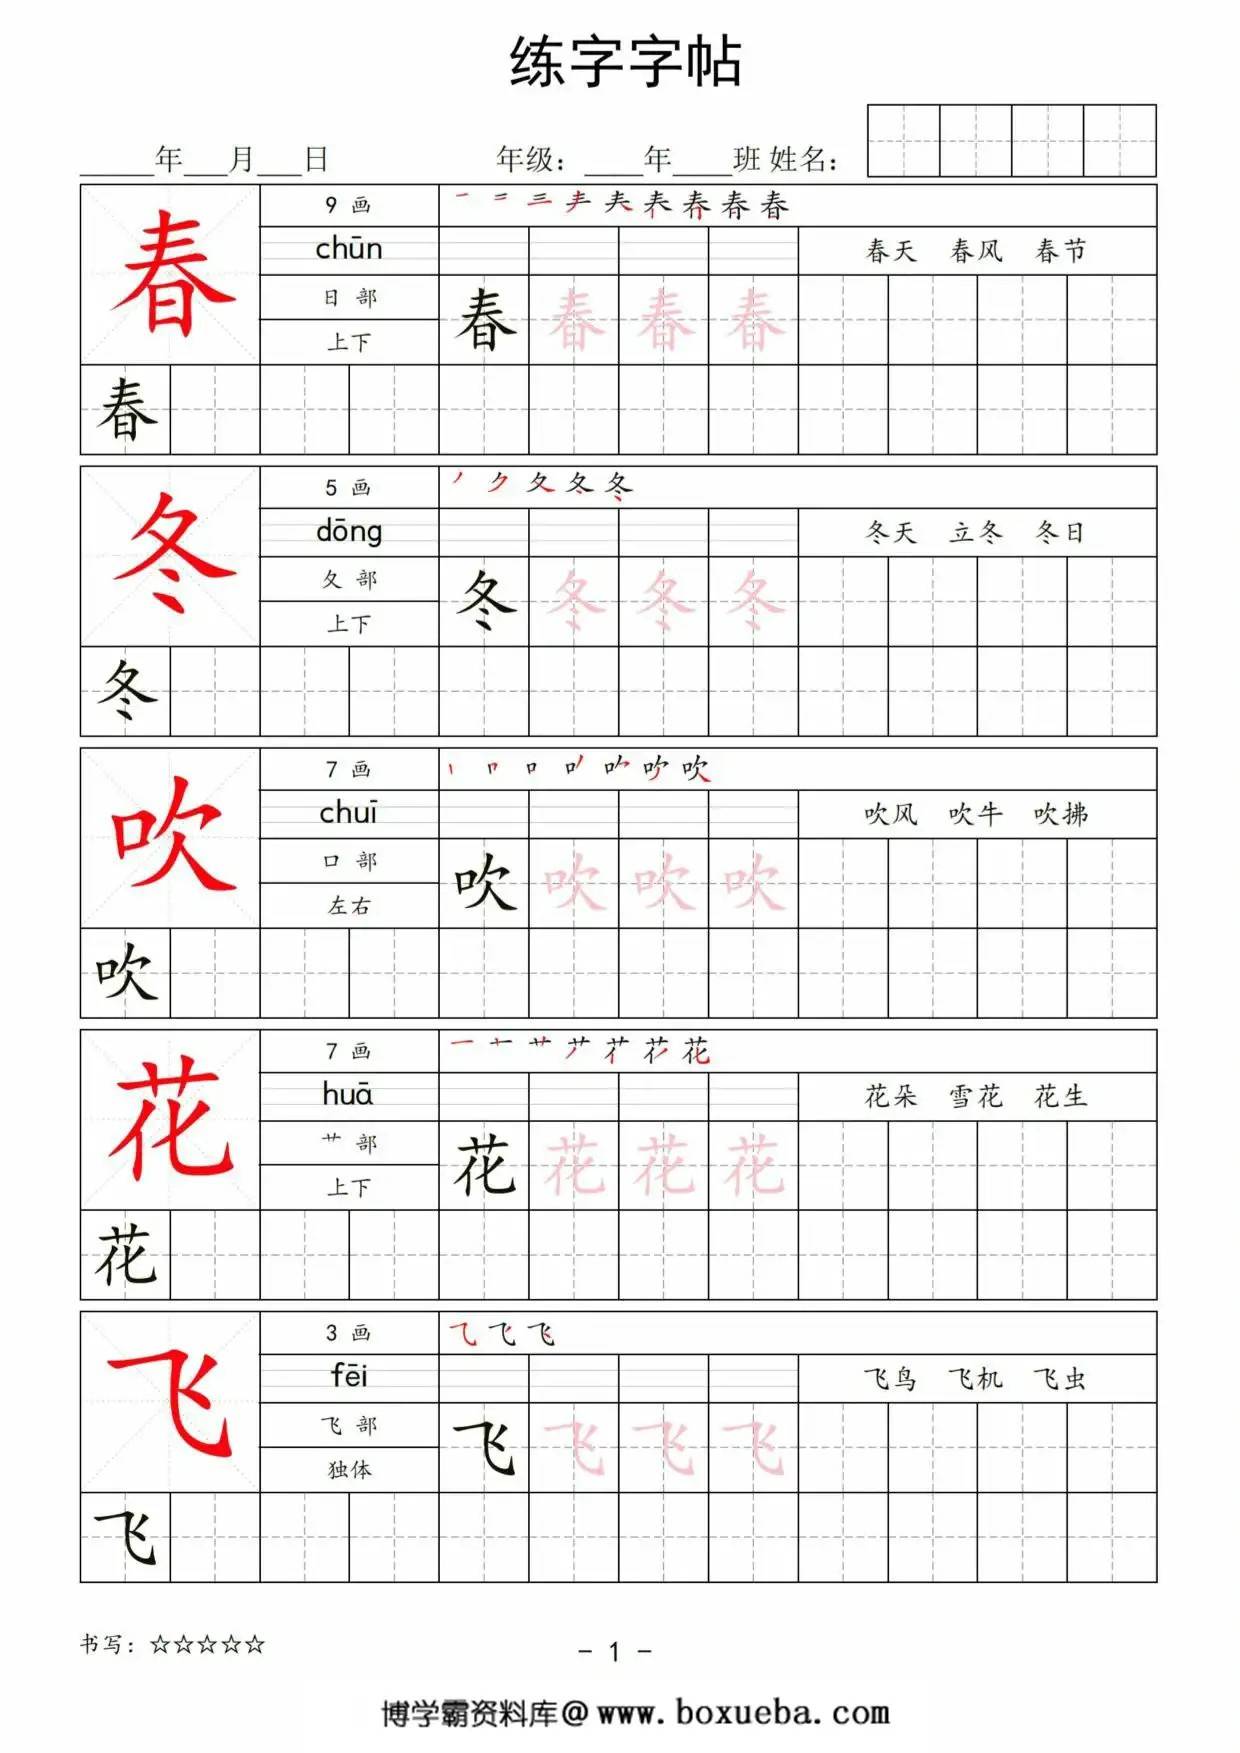 练字字帖
_____年___月___日 年级：____年____班 姓名：
春 9 画
chūn 春天 春风 春节
日 部 春 春 春 春
上下
春
冬 5 画
dōng 冬天 立冬 冬日
夂 部 冬 冬 冬 冬
上下
冬
吹 7 画
chuī 吹风 吹牛 吹拂
口 部 吹 吹 吹 吹
左右
吹
花 7 画
huā 花朵 雪花 花生
艹 部 花 花 花 花
上下
花
飞 3 画
fēi 飞鸟 飞机 飞虫
飞 部 飞 飞 飞 飞
独体
飞
书写：☆☆☆☆☆
- 1 -
博学霸资料库@www.boxueba.com